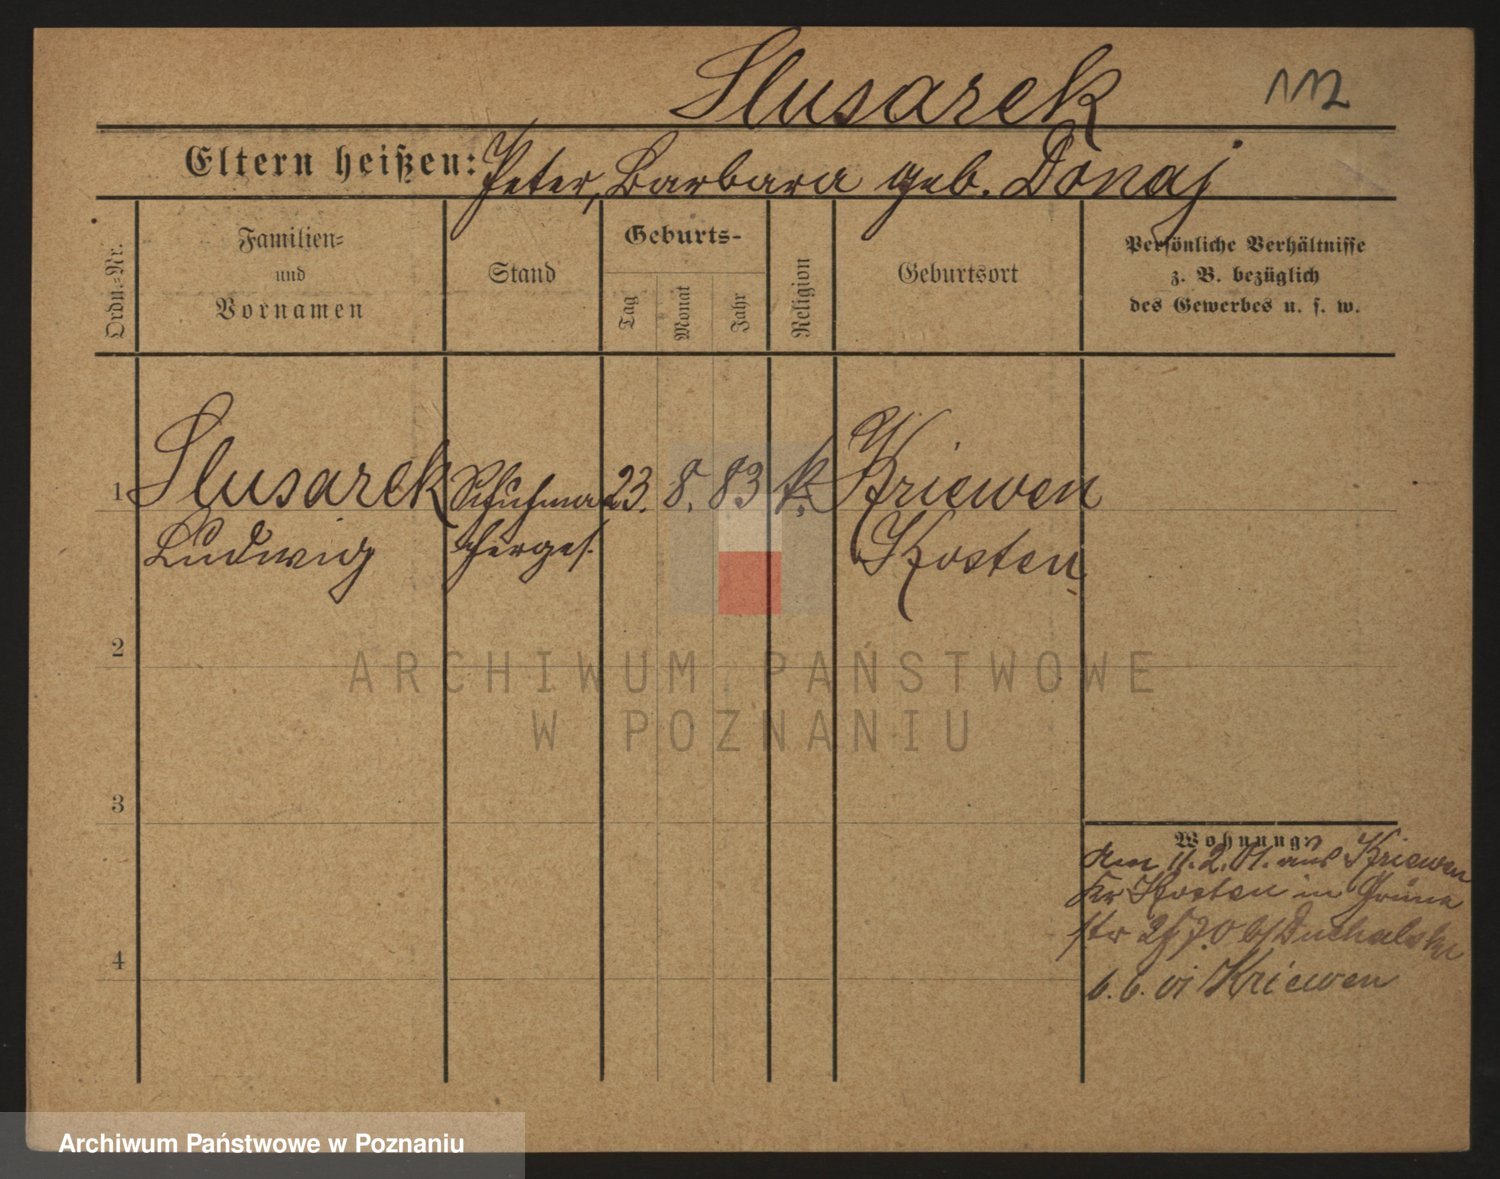 Slusarek 112
Eltern heißen: Peter, Barbara geb. Donaj
Ordn.-Nr.
Familien-
und
Vornamen
Stand
Geburts-
Tag
Monat
Jahr
Religion
Geburtsort
Persönliche Verhältnisse
z. B. bezüglich
des Gewerbes u. s. w.
1 Slusarek Schuhma 23. 8. 83 k. Kriewen
Ludwig cherges. Kosten
2
ARCHIWUM PAŃSTWOWE
W POZNANIU
3
Wohnung:
Am 11.2.01. aus Kriewen
Kr Kosten in Grüne
str Duchalski
4
6.6.01 Kriewen
Archiwum Państwowe w Poznaniu